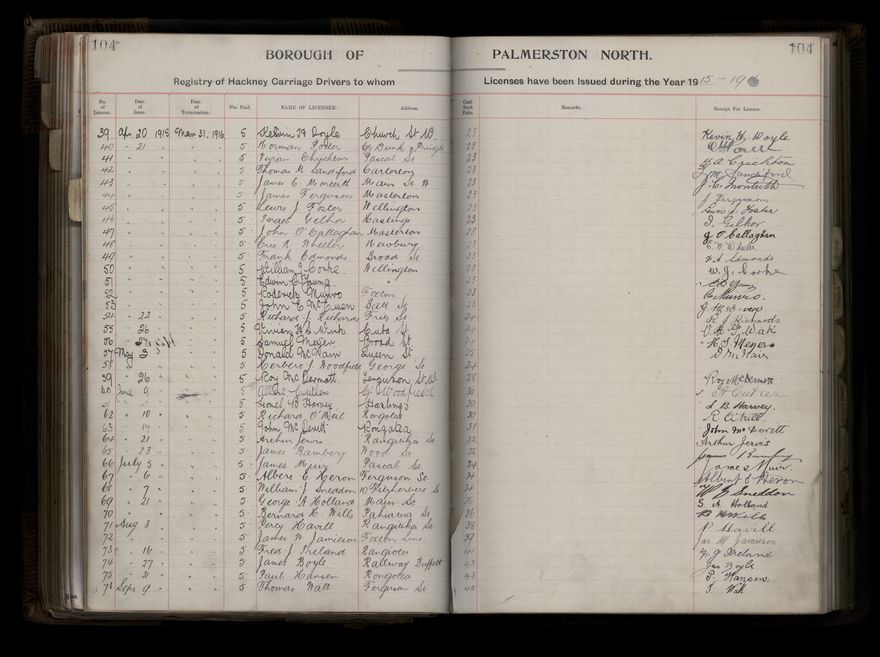 104 104
BOROUGH OF PALMERSTON NORTH.
Registry of Hackney Carriage Drivers to whom Licenses have been Issued during the Year 1915-1916
No. of License. Date of Issue. Date of Termination. Fee Paid. NAME OF LICENSEE. Address. Cash Book Folio. Remarks. Receipt For License.
39 Apr. 20 1915 Mar 31. 1916 5 Kelvin H Doyle Church St W. 23 Kevin H. Doyle
40 " 21 " " " 5 Norman Foster 23
41 " " " " 5 Chrichton Pascal St 23 Crichton
42 " " " " 5 Thomas M Sandiford Carterton 23 T. M. Sandiford
43 " " " " 5 James C. Monteith Main St W 23 J. C. Monteith
44 " " " " 5 James Ferguson Masterton 23 J Ferguson
45 " " " " 5 Lewis J Foster Wellington 23 Lewis J. Foster
46 " " " " 5 Israel Gelhor Hastings 23 I. Gelhor
47 " " " " 5 John O'Callaghan Masterton 23 J O'Callaghan
48 " " " " 5 Eric R Wheeler Newbury 23
49 " " " " 5 Frank Edmonds Broad St 23 Edmonds
50 " " " " 5 William J Cooke Wellington 23 W. J. Cooke
51 " " " " 5 Edwin C Young " 23
52 " " " " 5 Roderick Munro Foxton 23 Munro.
53 " " " " 5 John C McEwen 23
54 " 22 " " " 5 Richard J Richards 24 R J Richards
55 " 26 " " " 5 Vivian Wink Cuba St 24 Wink
56 " " " 5 Samuel Meyer Broad St 24 H. S. Meyer
57 May 3 " " " 5 Donald McNair Queen St 24 D McNair
58 " " " 5 Herbert J Woodfield George St 24
59 " 26 " " " 5 Roy McDermott. Ferguson St. W 28 Roy McDermott
60 June 9 " 5 Albert Cutler C/ Woodfield 30 Cutler
61 " " " " 5 Lionel B Harvey Hastings 30 L B Harvey.
62 " 10 " " " 5 Richard O'Neil Rongotea 30
63 " 14 " " " 5 John McDevitt Rongotea 31 John McDevitt
64 " 21 " " " 5 Arthur Jervis Rangitikei St 32 Arthur Jervis
65 " 23 " " " 5 James Bamberg Wood St 32
66 July 5 " " " 5 James Muir Pascal St 34 James Muir.
67 " 6 " " " 5 Albert E Heron Ferguson St. 34 Albert E Heron
68 " 7 " " " 5 William J Sneddon 10 Fitzherbert St 34 Sneddon
69 " 21 " " " 5 George A Holland Main St 36 G A. Holland
70 " " " " 5 Bernard H. Wills Pahiatua St 36
71 Aug 3 " " " 5 Percy Havill Rangitikei St 38 P Havill
72 " " " " 5 James W Jamieson Foxton Line 39 Jas W Jamieson
73 " 16 " " " 5 Fred J Ireland Rangiotu 41 J Ireland
74 " 27 " " " 5 James Boyle Railway Buffett 43 Jas Boyle
75 " 31 " " " 5 Paul Hansen Rongotea 43 P. Hansen.
76 Sept 9 " " " 5 Thomas Watt Ferguson St 45 T Watt